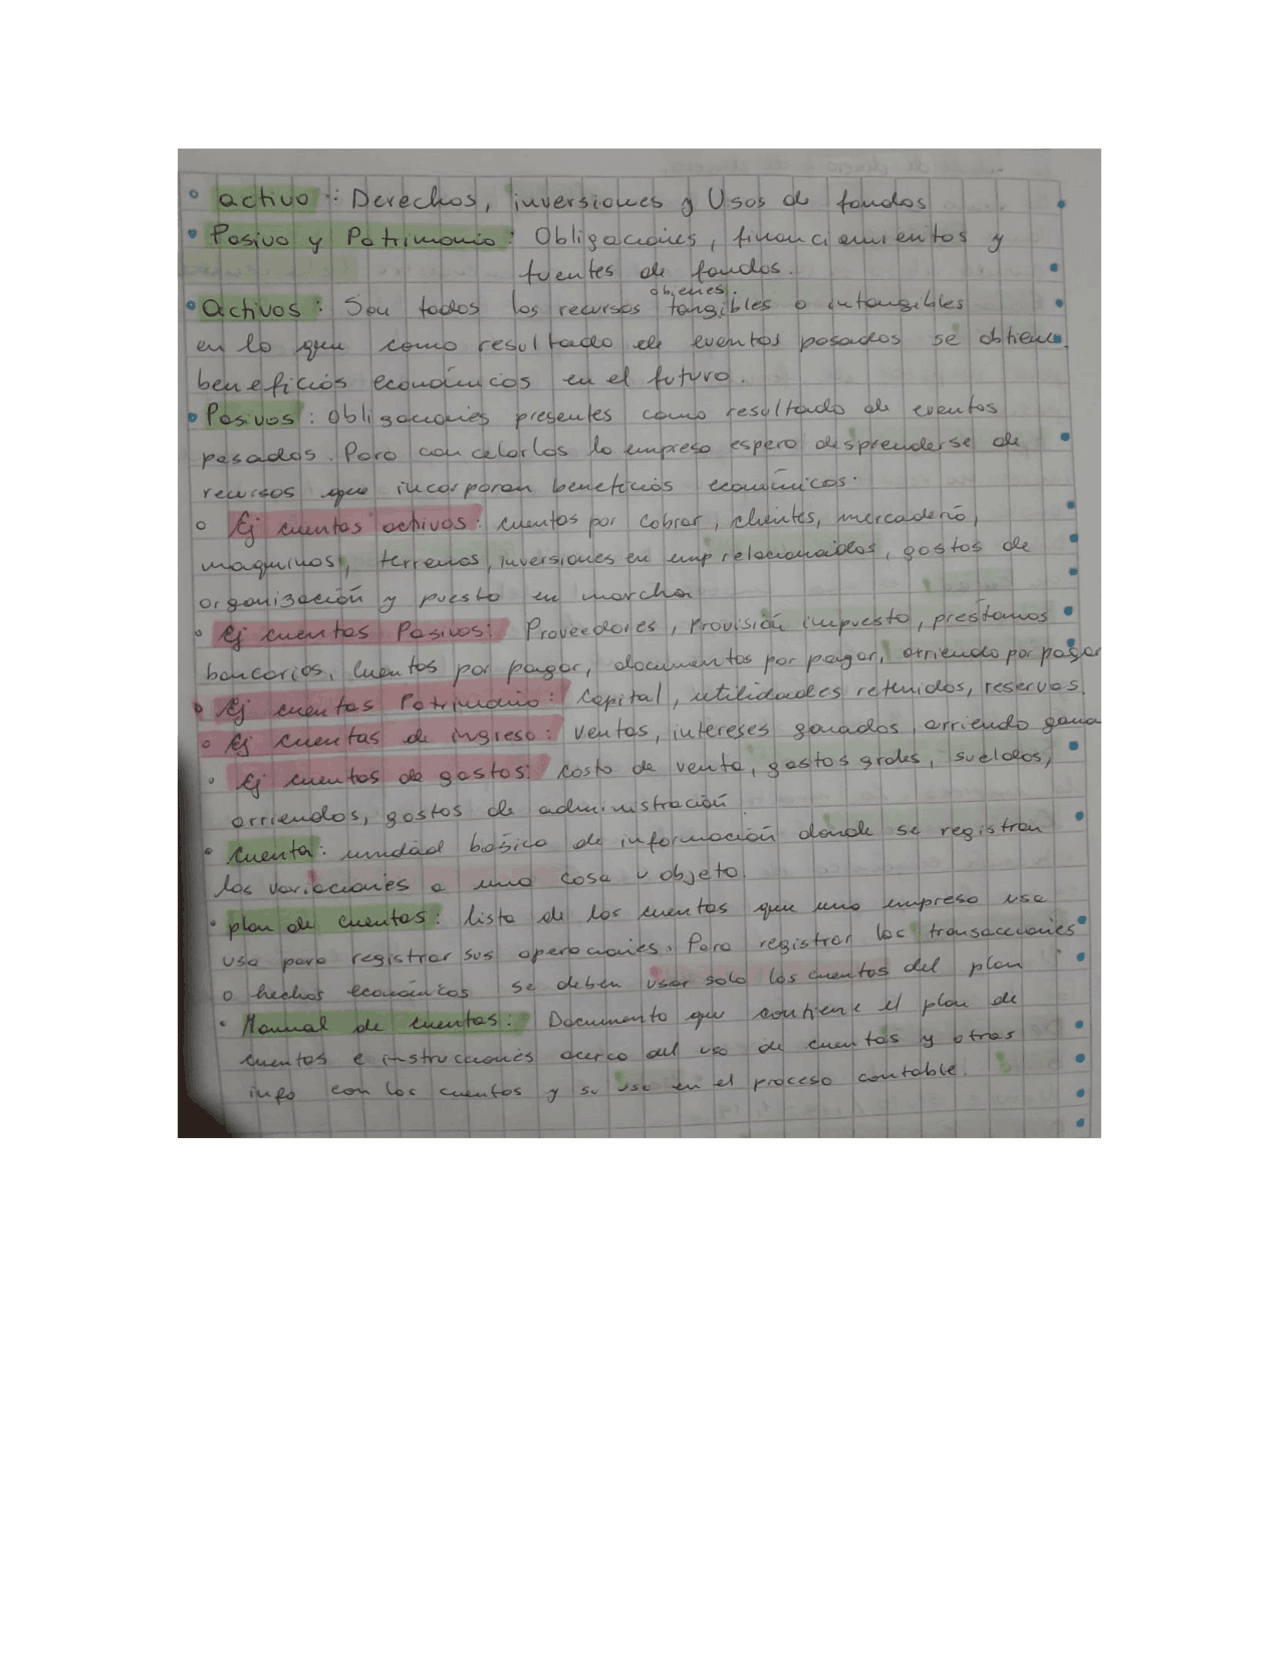 • activo: Derechos, inversiones y Usos de fondos
• Pasivo y Patrimonio: Obligaciones, financiamientos y
fuentes de fondos.
o bienes.
• Activos: Son todos los recursos tangibles o intangibles
en lo que como resultado de eventos pasados se obtiene
beneficios económicos en el futuro.
• Pasivos: Obligaciones presentes como resultado de eventos
pasados. Para cancelarlas la empresa espera desprenderse de
recursos que incorporan beneficios económicos.
o Ej cuentas activos: cuentas por cobrar, clientes, mercadería,
maquinas, terrenos, inversiones en emp relacionadas, gastos de
organización y puesta en marcha
o Ej cuentas Pasivos: Proveedores, Provisión impuesto, prestamos
bancarios, cuentas por pagar, documentos por pagar, arriendo por pagar
o Ej cuentas Patrimonio: Capital, utilidades retenidas, reservas.
o Ej cuentas de ingreso: ventas, intereses ganados, arriendo gana
o Ej cuentas de gastos: costo de venta, gastos grales, sueldos,
arriendos, gastos de administración
• Cuenta: unidad básica de información donde se registran
las variaciones a una cosa u objeto.
• plan de cuentas: lista de las cuentas que una empresa usa
usa para registrar sus operaciones. Para registrar las transacciones
o hechos económicos se deben usar solo las cuentas del plan
• Manual de cuentas: Documento que contiene el plan de
cuentas e instrucciones acerca del uso de cuentas y otras
info con las cuentas y su uso en el proceso contable.